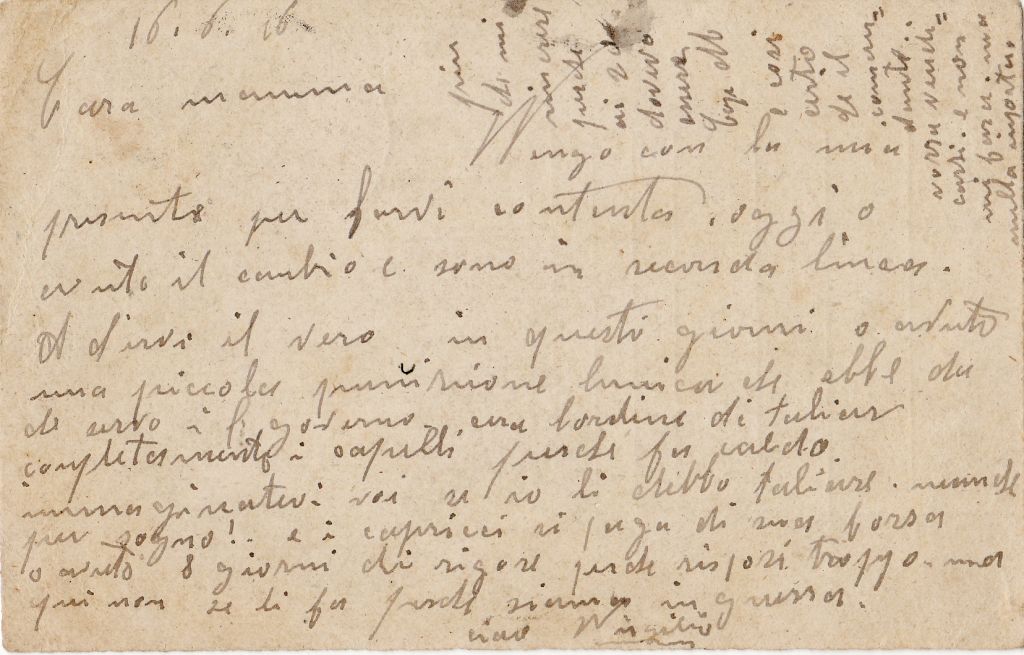 16. 6. 16
Cara mamma
Vengo con la mia
presente per farvi contenta, oggi o
avuto il cambio e sono in seconda linea.
A dirvi il vero in questi giorni o avuto
una piccola punizione lunica che abbe da
che servo il governo. cera lordine di taliar
completamente i capelli perche fa caldo.
immaginatevi voi se io li debbo taliare. neanche
per sogno!. e i capricci si paga di sua borsa
o avuto 8 giorni di rigore perche risposi troppo. ma
qui non se li fa perche siamo in guerra.
ciao Virgilio
più
di mi
perche
ai
dovevo
essere
e così
certo
che il
coman=
dante
vorra vendi=
carsi. e non
mi
nulla importa.